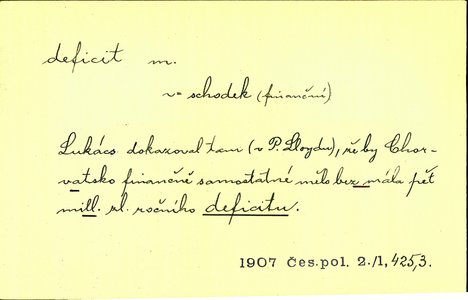 deficit m.
v= schodek (finanční)
Lukács dokazoval tam (v P. Lloydu), že by Chor-
vatsko finančně samostatné mělo bez mála pět
mill. zl. ročního deficitu.
1907 Čes.pol. 2./1, 425,3.